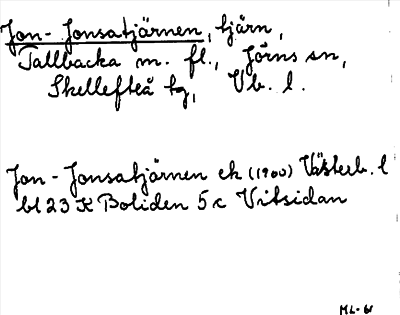 Jon-Jonsatjärnen, tjärn,
Tallbacka m. fl., Jörns sn,
Skellefteå tg, Vb. l.
Jon-Jonsatjärnen ek (1900) Västerb. l
bl 23 K Boliden 5 c Vitsidan
ML-61